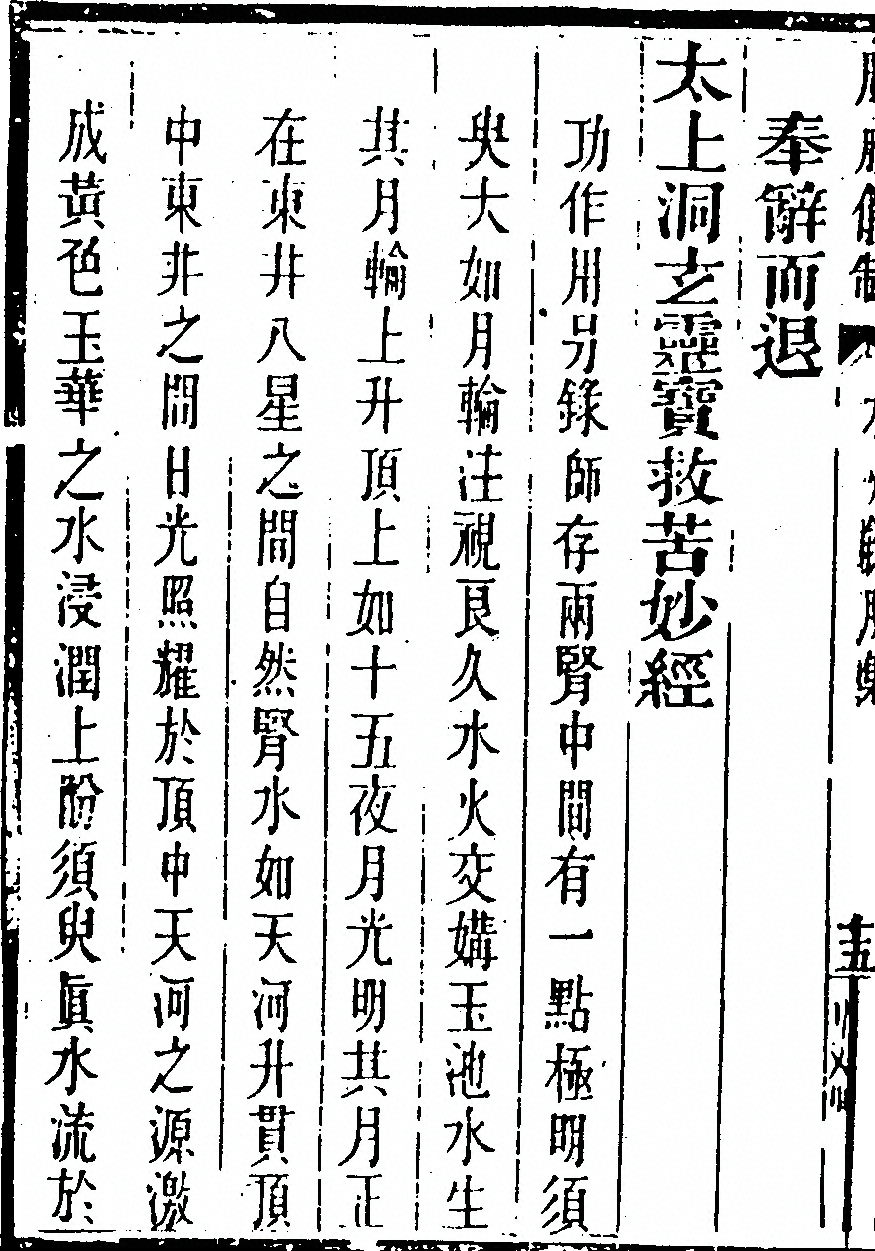 奉辭而退
太上洞玄靈寶救苦妙經
功作用另錄師存兩腎中間有一點極明須
臾大如月輪注視良久水火交媾玉池水生
其月輪上升頂上如十五夜月光明其月正
在東井八星之間自然腎水如天河升貫頂
中東井之間日光照耀於頂中天河之源激
成黃色玉華之水浸潤上腭須臾眞水流於
十五